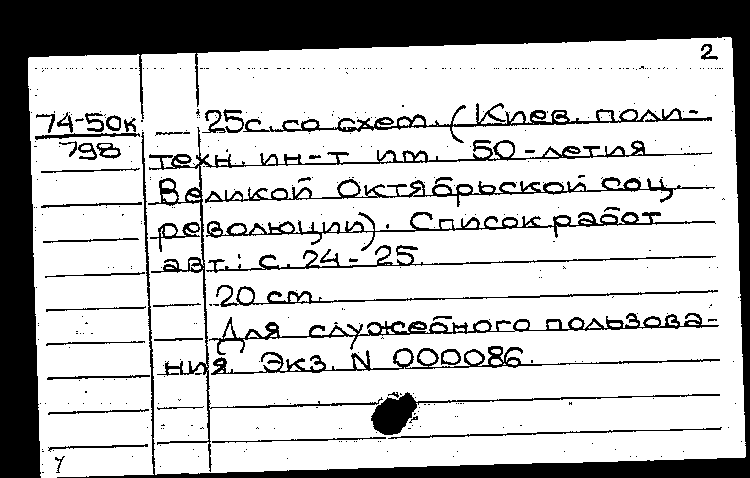 2
74-50к 25с. со схем. (Киев. поли-
798 техн. ин-т им. 50-летия
Великой Октябрьской соц.
революции). Список работ
авт.: с. 24-25.
20 см.
Для служебного пользова-
ния. Экз. N 000086.